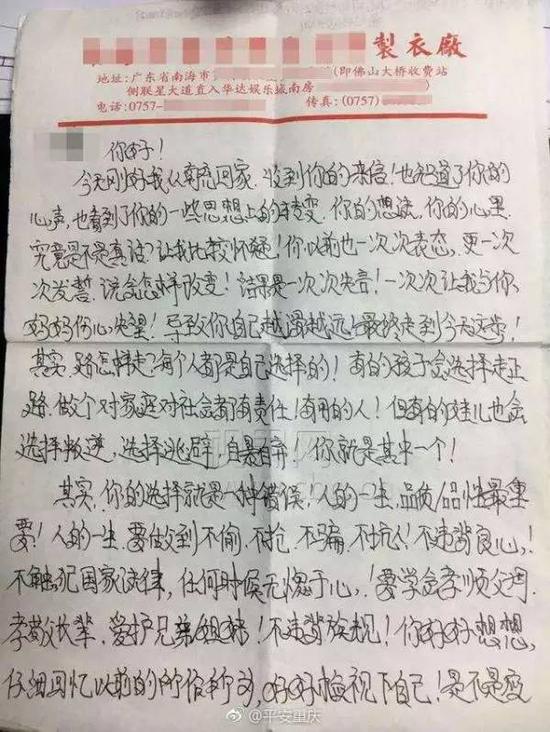 製衣廠
地址:广东省南海市 (即佛山大桥收费站
侧联星大道直入华达娱乐城南房
电话:0757- 传真:(0757)
你好!
今天刚好我从南充回家.收到你的来信!也知道了你的
心声,也看到了你的一些思想上的转变.你的想法.你的心里.
究竟是不是真话?让我比较怀疑!你以前也一次次表态,更一次
次发誓,说会怎样改变!结果是一次次失言!一次次让我与你
妈妈伤心失望!导致你自己越滑越远,最终走到今天这步!
其实.路怎样走?每个人都是自己选择的!有的孩子会选择走正
路.做个对家庭对社会都有责任!有用的人!但有的娃儿也会
选择叛逆,选择逃避,自暴自弃!你就是其中一个!
其实.你的选择就是一种错误,人的一生.品质/品性最重
要!人的一生.要做到不偷.不抢.不骗.不坑人!不违背良心,!
不触犯国家法律,任何时候无愧于心,!要学会孝顺父母.
孝敬长辈.爱护兄弟姐妹!不违背族规!你好好想想,
仔细回忆以前的所作所为,好好检视下自己!是不是变
@平安重庆